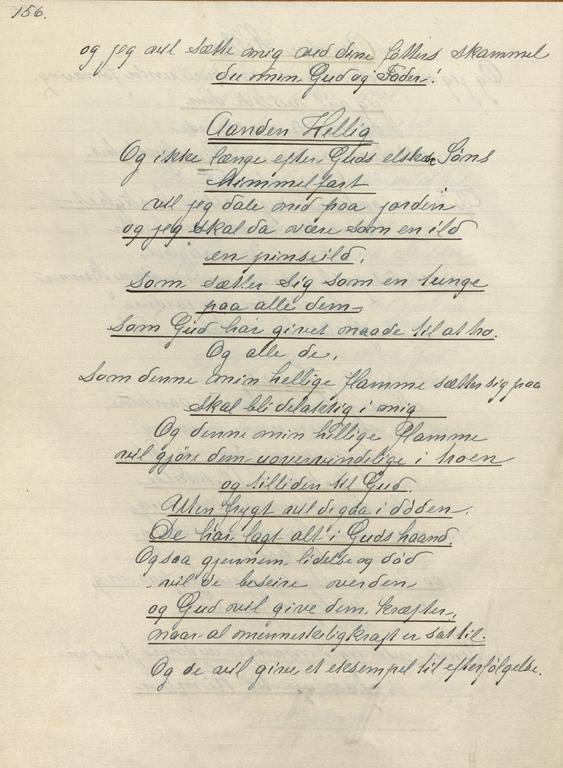 156.
og jeg vil sætte mig ved dine fötters skammel
du min Gud og Fader!
Aanden Hellig
Og ikke længe efter Guds elskede Söns
Himmelfart
vil jeg dale ned paa jorden
og jeg skal da være som en ild
en pinseild,
som sætter sig som en tunge
paa alle dem
som Gud har givet naade til at tro.
Og alle de,
som denne min hellige flamme sætter sig paa
skal bli delaktig i mig
Og denne min hellige flamme
vil gjöre dem uovervindelige i troen
og tilliden til Gud.
Uten frygt vil de gaa i döden.
De har lagt alt i Guds haand.
Ogsaa gjennem lidelse og död
vil de beseire verden
og Gud vil give dem kræfter,
naar al menneskelig kraft er sat til.
Og de vil give et eksempel til efterfölgelse.